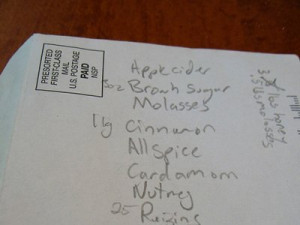 PRESORTED
FIRST-CLASS
MAIL
U.S. POSTAGE
PAID
MSP
Apple cider
Brown Sugar
Molasses
Cinnamon
All Spice
Cardamom
Nutmeg
25 Raisins
lbs honey
molasses